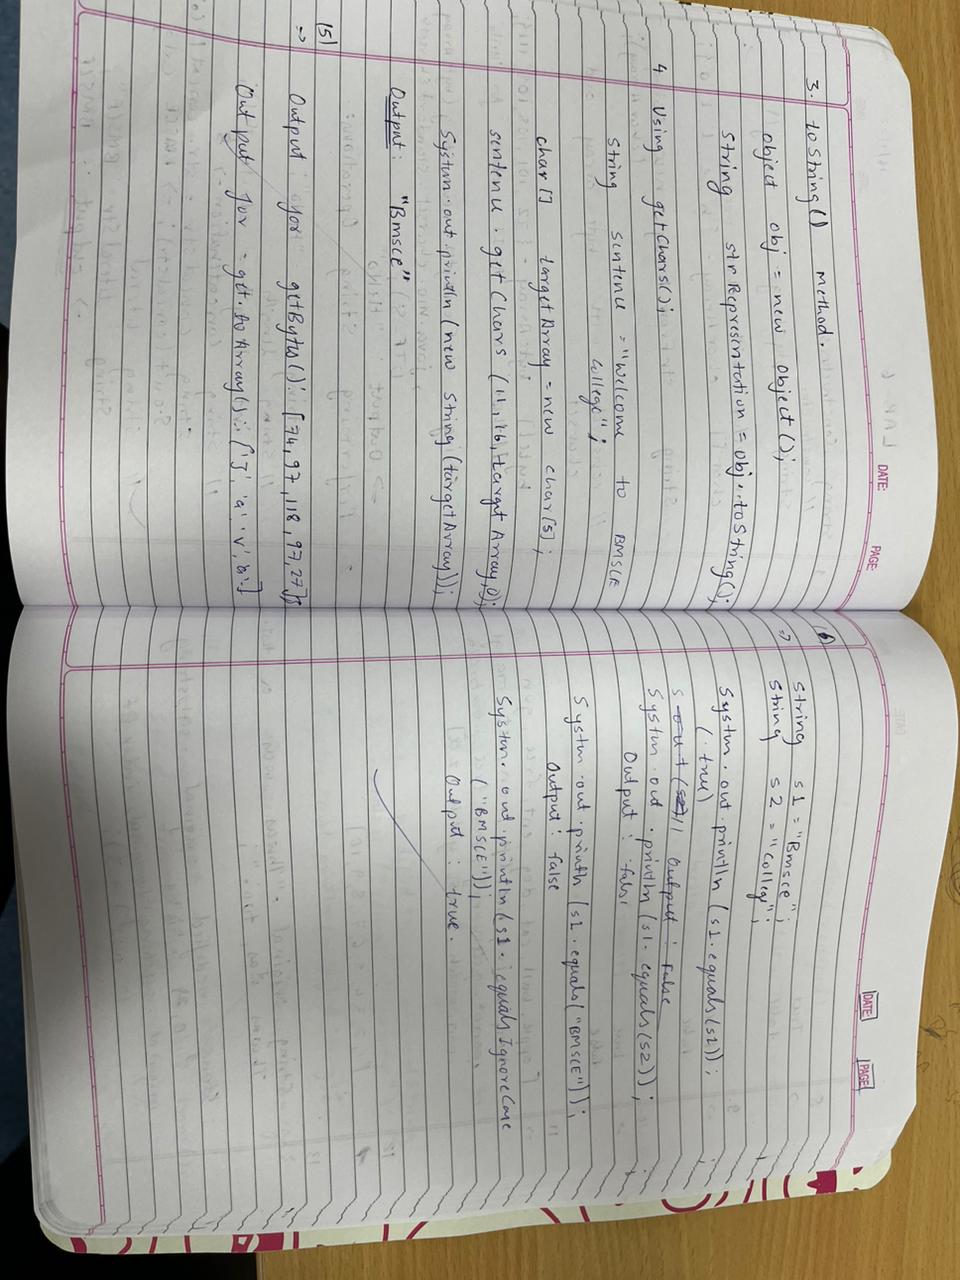 DATE:
PAGE:
3. toString() method.
object obj = new object();
String strRepresentation = obj.toString();
4 Using getChars();
String sentence = "Welcome to BMSCE
College";
char[] targetArray = new char[5];
sentence.getChars(11,16,targetArray,0);
System.out.println(new String(targetArray));
Output: "Bmsce"
(5)
⇒ Output for getBytes(): [74,97,118,97,27]
Output for = get.toArray(): ['J','a','v','a']
DATE:
PAGE:
(6)
⇒ String s1 = "Bmsce";
String s2 = "College";
System.out.println(s1.equals(s1));
(.true)
s out(s2)// Output: False
System.out.println(s1.equals(s2));
Output: false
System.out.println(s1.equals("BMSCE"));
Output: false
System.out.println(s1.equalsIgnoreCase
("BMSCE"));
Output: true.